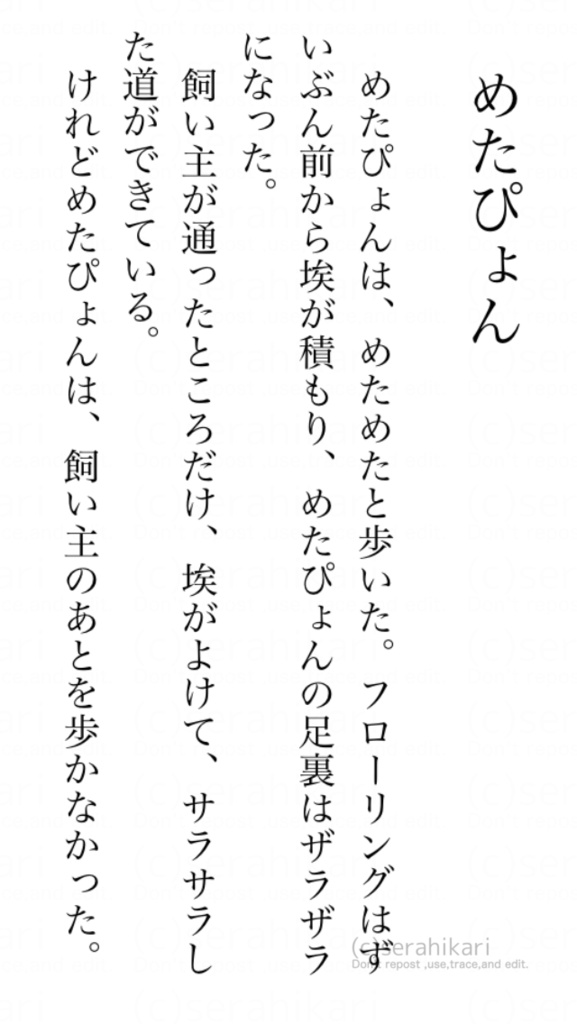 めたぴょん
めたぴょんは、めためたと歩いた。フローリングはず
いぶん前から埃が積もり、めたぴょんの足裏はザラザラ
になった。
飼い主が通ったところだけ、埃がよけて、サラサラし
た道ができている。
けれどめたぴょんは、飼い主のあとを歩かなかった。
(c)serahikari
Don't repost ,use,trace,and edit.